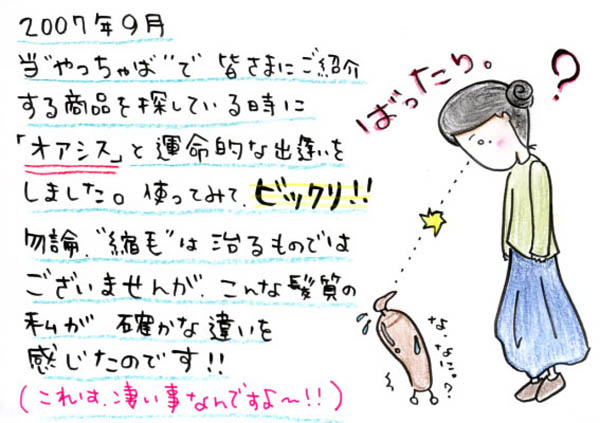 2007年9月
当"やっちゃば"で 皆さまにご紹介
する商品を探している時に
「オアシス」と運命的な出逢いを
しました。使ってみて、ビックリ!!
勿論、"縮毛"は治るものでは
ございませんが、こんな髪質の
私が 確かな違いを
感じたのです!!
(これは、凄い事なんですよ〜!!)
ばったり。
?
な、なに。?